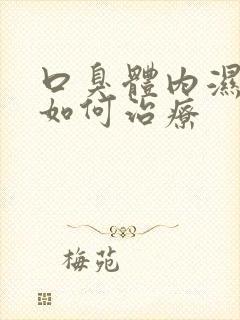 口臭體內濕
如何治療
梅苑